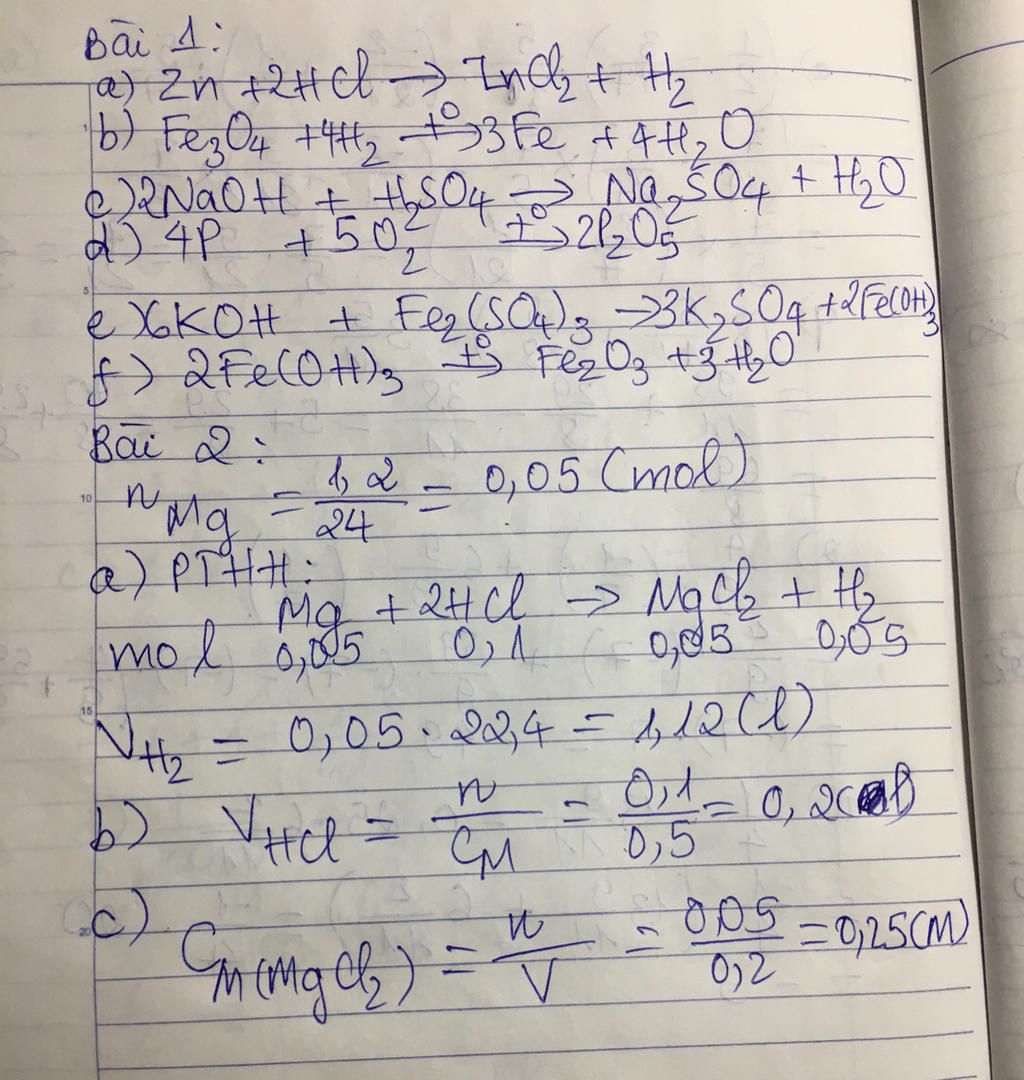 Bài 1:
a) Zn + 2HCl → ZnCl₂ + H₂
b) Fe₃O₄ + 4H₂ →(t⁰) 3Fe + 4H₂O
c) 2NaOH + H₂SO₄ → Na₂SO₄ + H₂O
d) 4P + 5O₂ →(t⁰) 2P₂O₅
e) 6KOH + Fe₂(SO₄)₃ → 3K₂SO₄ + 2Fe(OH)₃
f) 2Fe(OH)₃ →(t⁰) Fe₂O₃ + 3H₂O
Bài 2:
n_Mg = 1,2/24 = 0,05 (mol)
a) PTHH:
Mg + 2HCl → MgCl₂ + H₂
mol 0,05 0,1 0,05 0,05
V_H₂ = 0,05 . 22,4 = 1,12 (l)
b) V_HCl = n/C_M = 0,1/0,5 = 0,2 (l)
c) C_M(MgCl₂) = n/V = 0,05/0,2 = 0,25 (M)